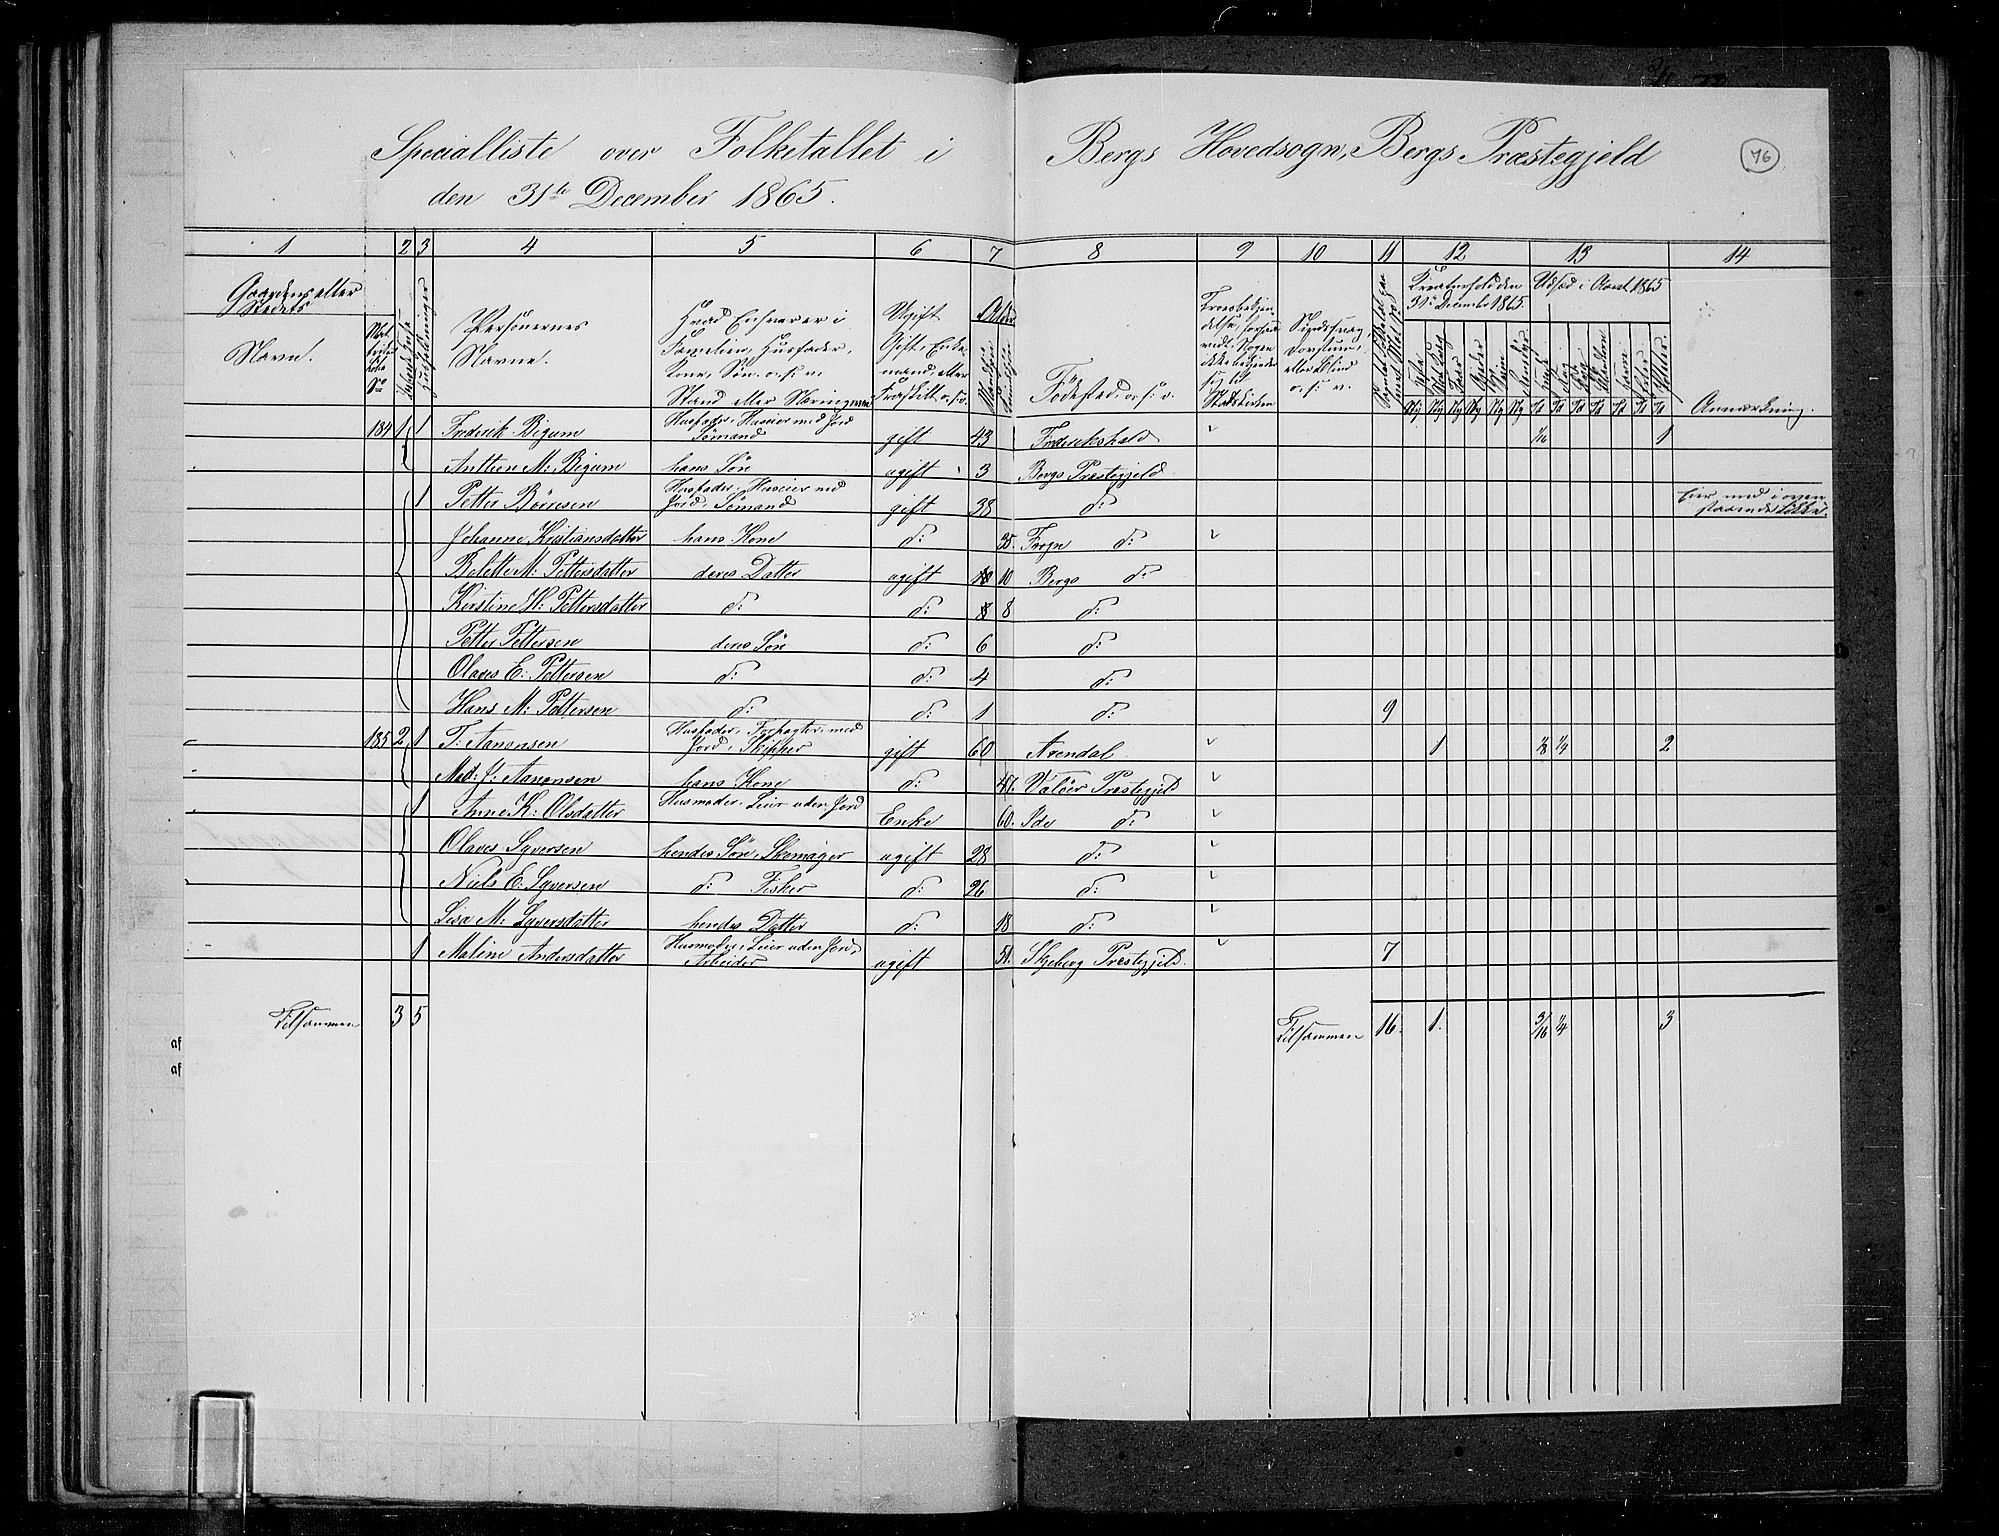 Specialliste over Folketallet i Bergs Hovedsogn, Bergs Præstegjeld
76
den 31te December 1865.
1 2 3 4 5 6 7 8 9 10 11 12 13 14
Gaardens eller Stedets
Navn.
Personernes
Navne.
Hvad Enhver er i
Familien, Husfader,
Kone, Søn o.s.v.
Stand eller Næringsvei
Ugift
Gift, Enke-
mand, eller
Fraskilt o.s.v.
Alder
Fødested, o.s.v.
Kreaturhold den
31te December 1865.
Udsæd i Aaret 1865
Anmærkning.
184 1 1 Frederik Bigum Husfader, Huseier med Jord Sømand gift 43 Frederikshald 1/16 1
Anthon M: Bigum hans Søn ugift 3 Bergs Præstegjeld
1 Petter Børresen Husfader, Huseier med Jord, Sømand gift 38 d: Eier med i oven staaende Løkke.
Johanne Kristiansdatter hans Kone d: 35. Frogn d:
Bolette M: Pettersdatter deres Datter ugift 10 Bergs d:
Kirstine H: Pettersdatter d: d: 8 d:
Petter Pettersen deres Søn d: 6 d:
Olaves E: Pettersen d: d: 4 d:
Hans M: Pettersen d: d: 1 d: 9
185 2 1 T: Aanonsen Husfader, Forpagter med Jord, Skipper gift 60 Arendal 1 1/8 1/4 2
Mad: J: Aanonsen hans Kone d: 41. Valøer Præstegjeld
1 Anne K: Olsdatter Husmoder, Leier uden Jord Enke 60. Ide d:
Olaves Syversen hendes Søn, Skomager ugift 28 d:
Niels C: Syversen d: Fisker d: 26 d:
Lisa M: Syversdatter hendes Datter d: 18 d:
1 Malene Andersdatter Husmoder, Leier uden Jord, Arbeider ugift 51. Skjeberg Præstegjeld. 7
Tilsammen 3 5 Tilsammen 16. 1. 3/16 1/4 3
af
af